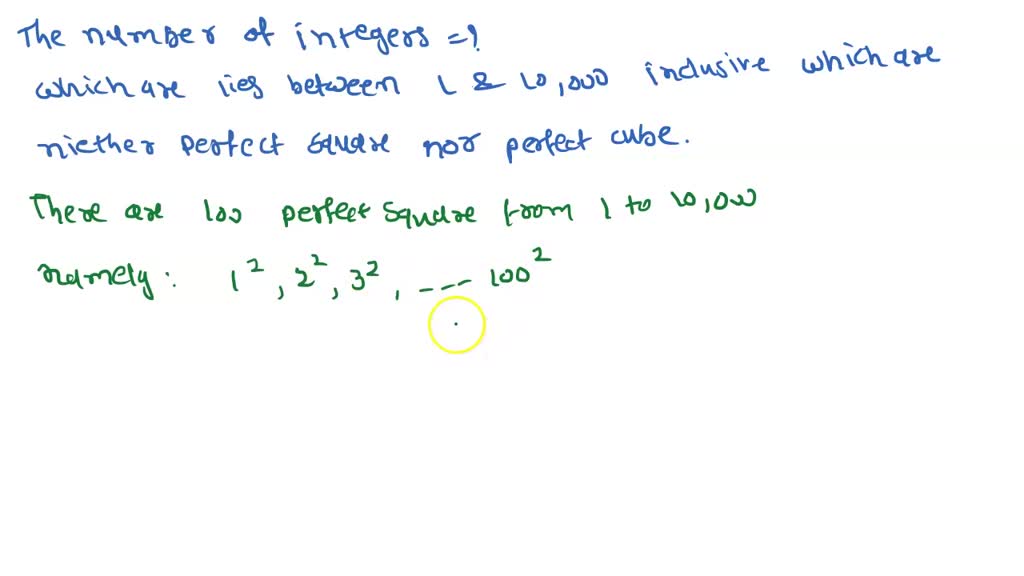 The number of integers =?
which are lies between 1 & 10,000 inclusive which are
niether perfect square nor perfect cube.
There are 100 perfect square from 1 to 10,000
namely: 1², 2², 3², --- 100²